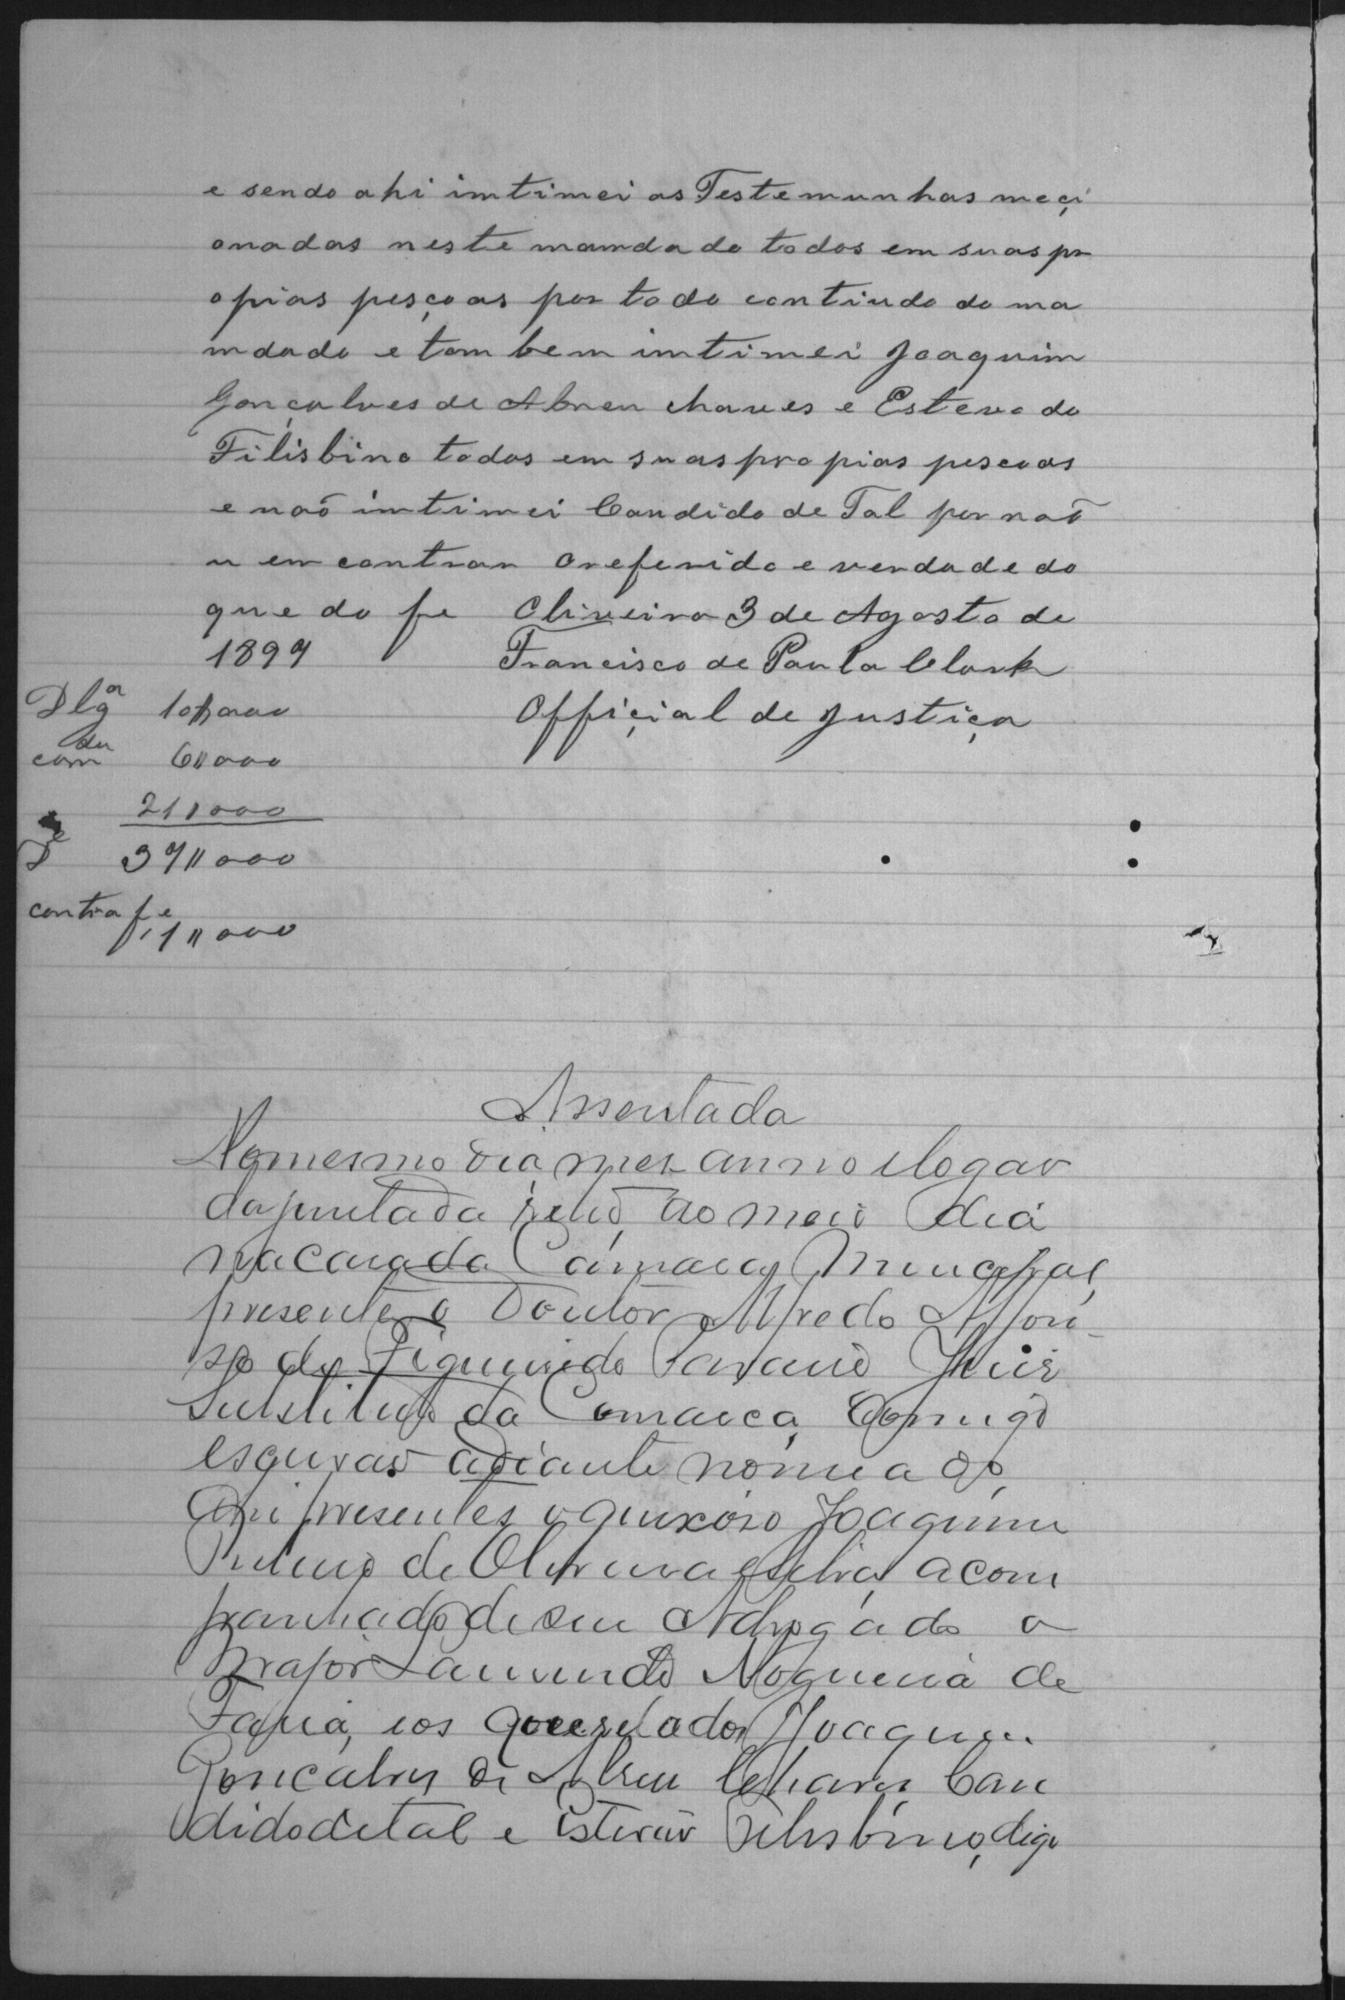 e sendo ahi imtimei as Testemunhas meçi
onadas neste mamdado todos em suas pr
opias pesçoas por todo contiudo do ma
mdado e tombem imtimei Joaquim
Gonçalves de Abreu chaves e Estevo do
Filisbino todos em suas propias pescoas
e naõ imtimei Candido de Tal por naõ
u emcontrar O referido e verdade do
que do fe Oliveira 3 de Agosto de
1897 Francisco de Paula Clark
Offiçial de Justiça
Dlgª 10$000
comdu 6$000
21$000
De 37$000
contra fe
1$000
Assentada
No mesmo dia, mes anno e logar
da juntada retro, ao meio dia
na casa da Camara Municipal,
presente o Doutor Alfredo Affon-
so de Figueiredo Juis
Substituto da Comarca, Comigo
escrivaõ adiante nomeado,
ahi presentes o queixoso Joaquim
de Oliveira e Silva, acom
panhado de seu Advogado o
Major Laurindo Nogueira de
Faria, e os querelados Joaquim
Goncalves de Abreu Chaves, Can
dido de tal e Estevaõ Felisbino, digo